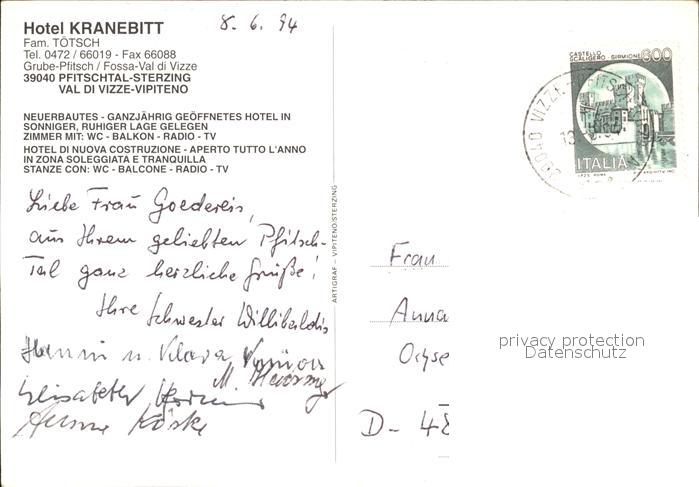 Hotel KRANEBITT
Fam. TÖTSCH
Tel. 0472 / 66019 - Fax 66088
Grube-Pfitsch / Fossa-Val di Vizze
39040 PFITSCHTAL-STERZING
VAL DI VIZZE-VIPITENO
8. 6. 94
NEUERBAUTES - GANZJÄHRIG GEÖFFNETES HOTEL IN
SONNIGER, RUHIGER LAGE GELEGEN
ZIMMER MIT: WC - BALKON - RADIO - TV
HOTEL DI NUOVA COSTRUZIONE - APERTO TUTTO L'ANNO
IN ZONA SOLEGGIATA E TRANQUILLA
STANZE CON: WC - BALCONE - RADIO - TV
Liebe Frau Goedereis,
aus Ihrem geliebten Pfitsch-
Tal ganz herzliche Grüße!
Ihre Schwester Willibaldis
Hanni u. Klara
M.
Elisabeth
Anna Köske
ARTIGRAF - VIPITENO/STERZING
CASTELLO
SCALIGERO - SIRMIONE 600
39040 VIZZE
ITALIA
Frau
Anna
Ochse
D- 48
privacy protection
Datenschutz